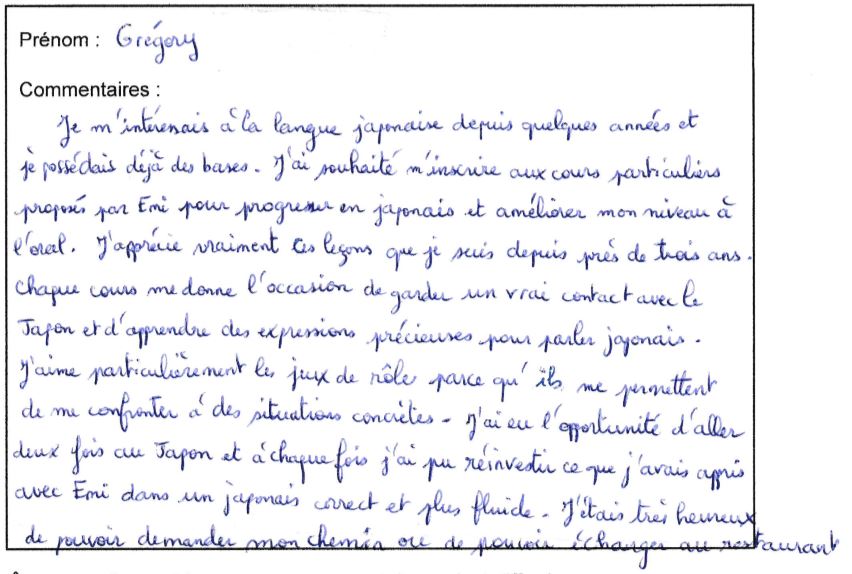 Prénom : Grégory
Commentaires :
Je m'intéressais à la langue japonaise depuis quelques années et
je possédais déjà des bases. J'ai souhaité m'inscrire aux cours particuliers
proposés par Emi pour progresser en japonais et améliorer mon niveau à
l'oral. J'apprécie vraiment ces leçons que je suis depuis près de trois ans.
Chaque cours me donne l'occasion de garder un vrai contact avec le
Japon et d'apprendre des expressions précieuses pour parler japonais.
J'aime particulièrement les jeux de rôle parce qu'ils me permettent
de me confronter à des situations concrètes. J'ai eu l'opportunité d'aller
deux fois au Japon et à chaque fois j'ai pu réinvestir ce que j'avais appris
avec Emi dans un japonais correct et plus fluide. J'étais très heureux
de pouvoir demander mon chemin ou de pouvoir échanger au restaurant